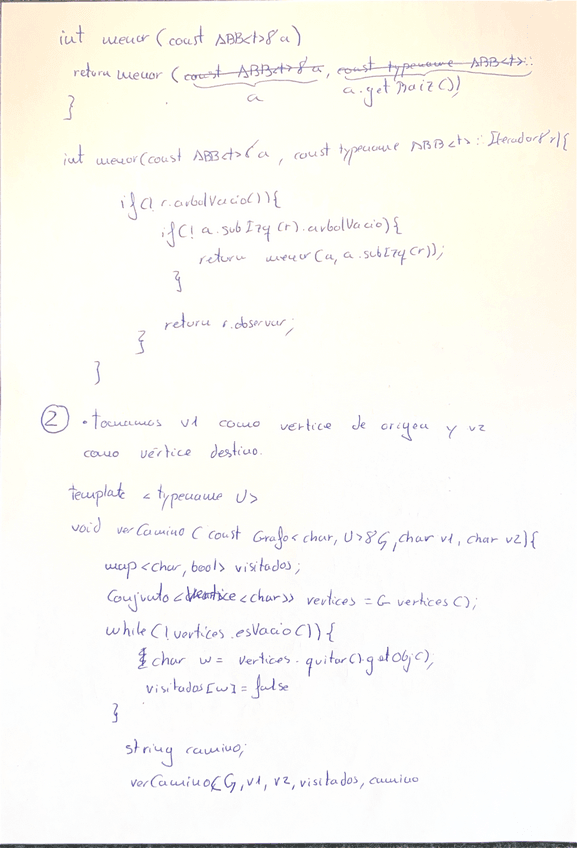 int menor (const ABB<t>& a)
return menor (const ABB<t>& a, const typename ABB<t>::
a a.getRaiz())
}
int menor(const ABB<t>& a, const typename ABB<t>::Iterador& r){
if(! r.arbolVacio()){
if(! a.subIzq(r).arbolVacio){
return menor(a, a.subIzq(r));
}
return r.observar;
}
}
② • tomamos v1 como vértice de origen y v2
como vértice destino.
Template <typename U>
void verCamino (const Grafo<char, U>& G, char v1, char v2){
map<char, bool> visitados;
Conjunto<Vertice<char>> vertices = G vertices();
while(!vertices.esVacio()){
char w = vertices.quitar().getObj();
visitados[w] = false
}
string camino;
verCamino(G, v1, v2, visitados, camino